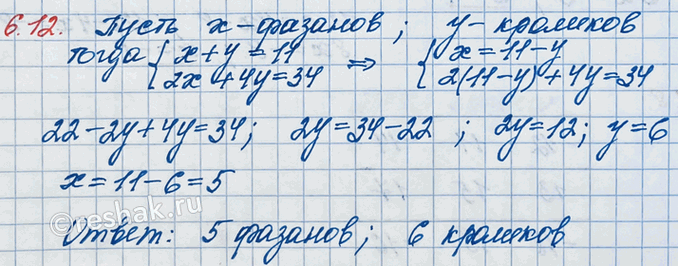 6.12. Пусть x-фазанов; y-кроликов
тогда { x+y=11 ⇒ { x=11-y
2x+4y=34 2(11-y)+4y=34
22-2y+4y=34; 2y=34-22; 2y=12; y=6
x=11-6=5
©reshak.ru
Ответ: 5 фазанов; 6 кроликов